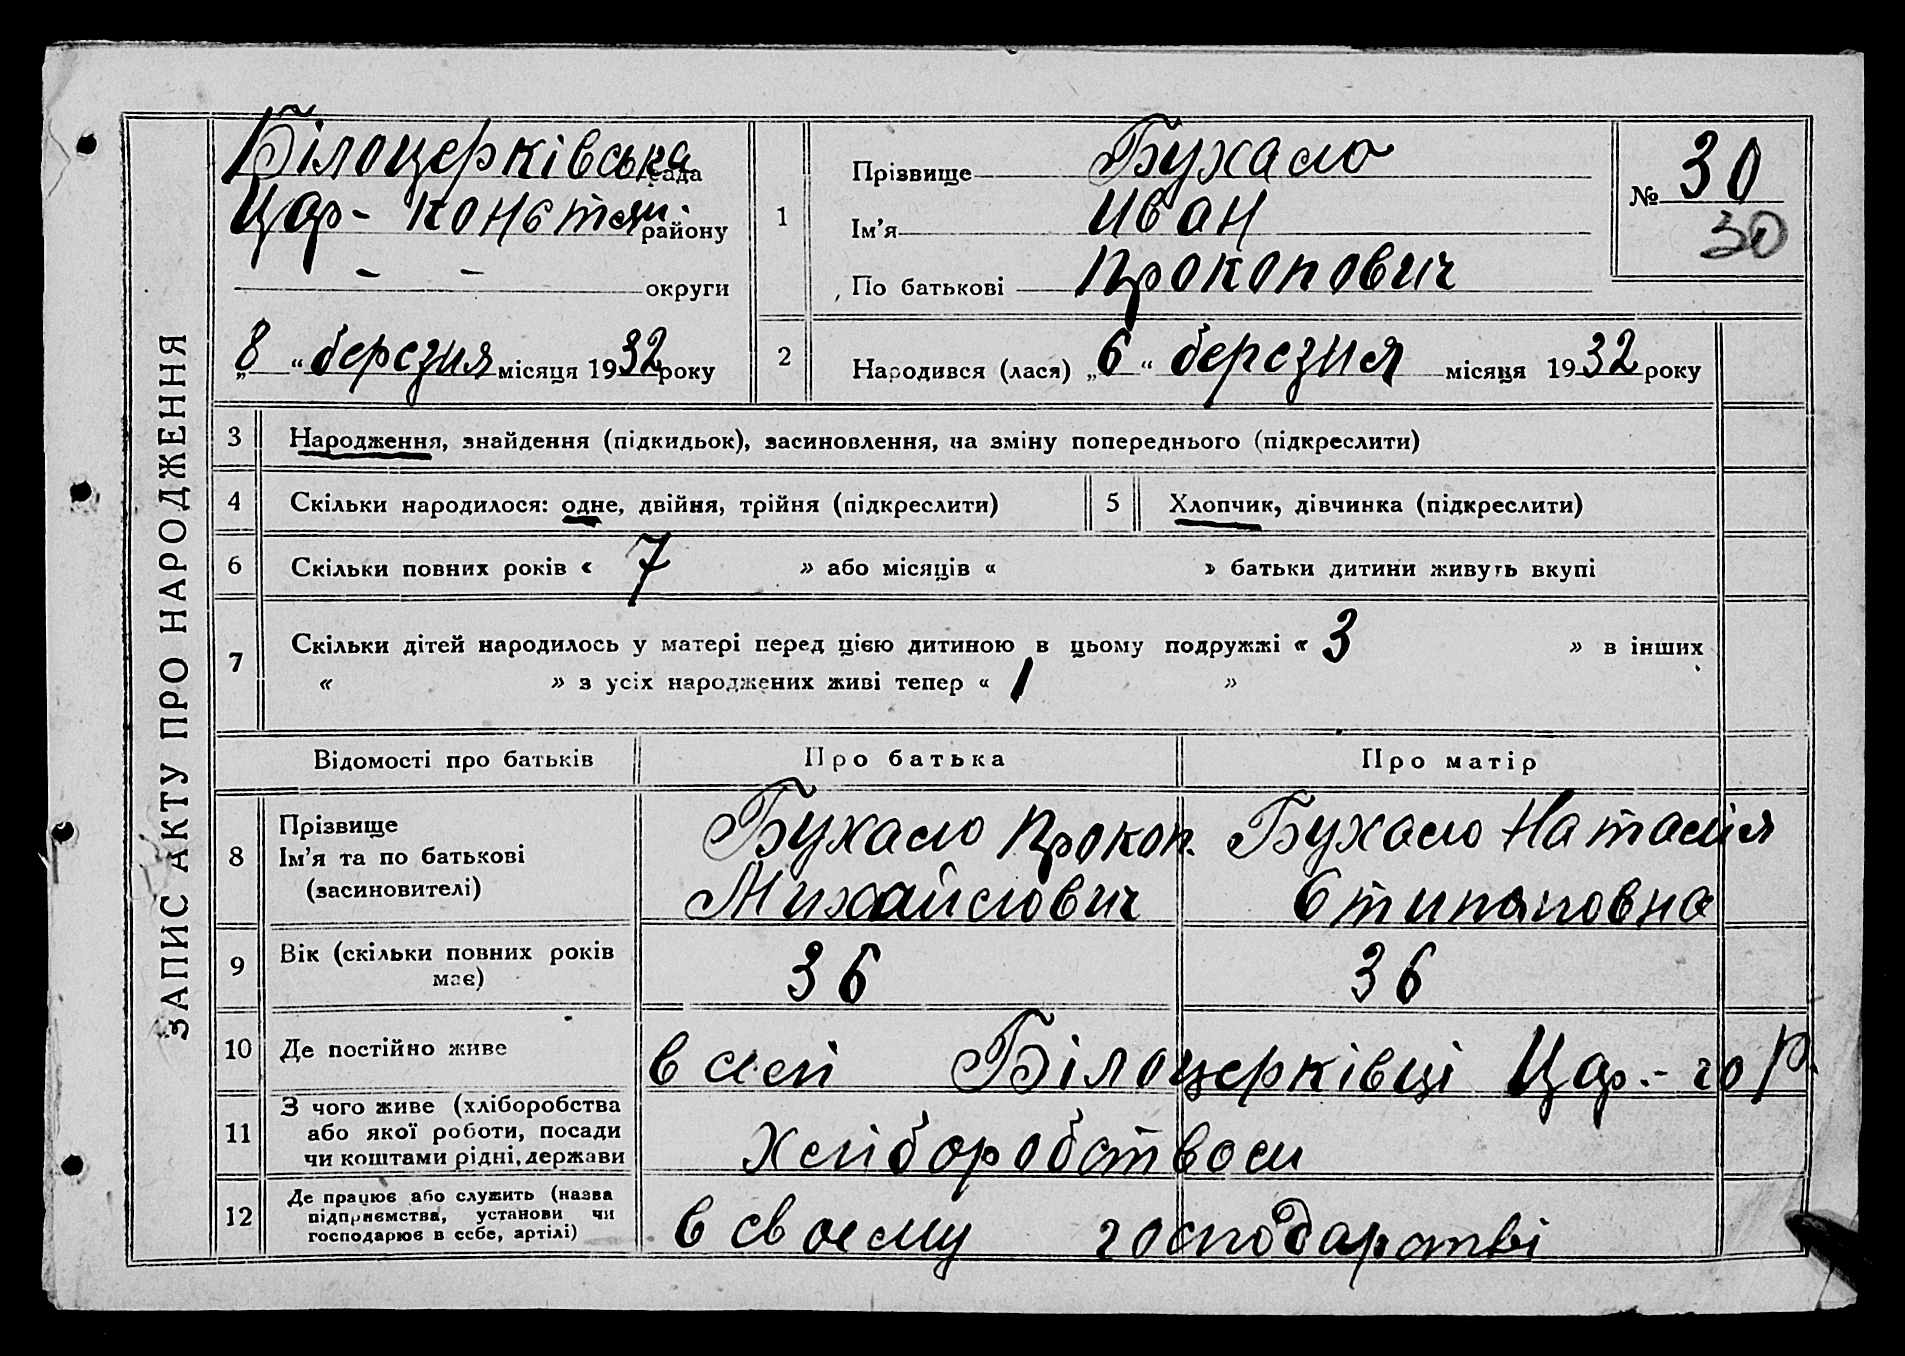 ЗАПИС АКТУ ПРО НАРОДЖЕННЯ
Білоцерківська рада
Цар-Констян. району
- - округи
„8“ березня місяця 1932 року
1 Прізвище Бухало
Ім’я Иван
По батькові Прокопович
№ 30
30
2 Народився (лася) „6“ березня місяця 1932 року
3 Народження, знайдення (підкидьок), засиновлення, на зміну попереднього (підкреслити)
4 Скільки народилося: одне, двійня, трійня (підкреслити) 5 Хлопчик, дівчинка (підкреслити)
6 Скільки повних років « 7 » або місяців « » батьки дитини живуть вкупі
7 Скільки дітей народилось у матері перед цією дитиною в цьому подружжі « 3 » в інших
« » з усіх народжених живі тепер « 1 »
Відомості про батьків Про батька Про матір
8 Прізвище
Ім’я та по батькові
(засиновителі)
Бухало Прокоп.
Михайлович
Бухало Наталія
Стипановна
9 Вік (скільки повних років
має)
36 36
10 Де постійно живе в селі Білоцерківці Цар.-го Р.
11 З чого живе (хліборобства
або якої роботи, посади
чи коштами рідні, держави
Хліборобством
12 Де працює або служить (назва
підприємства, установи чи
господарює в себе, артілі)
в своему господарстві